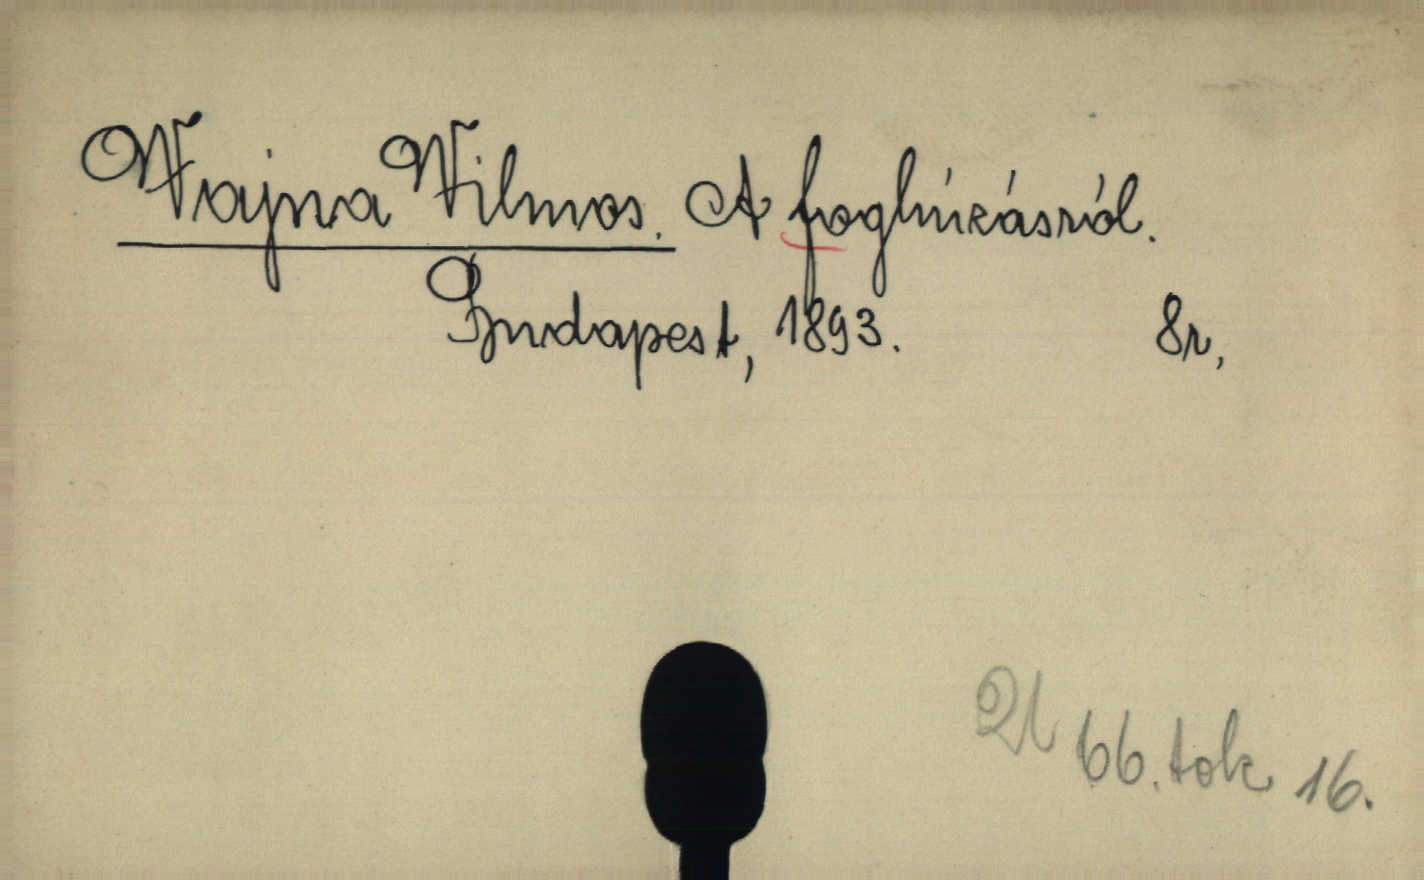 Vajna Vilmos. A foghúzásról.
Budapest, 1893. 8r,
66. tok 16.